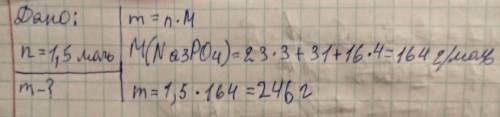 Дано:
n = 1,5 моль
m - ?
m = n · M
M(Na3PO4) = 23·3 + 31 + 16·4 = 164 г/моль
m = 1,5 · 164 = 246 г